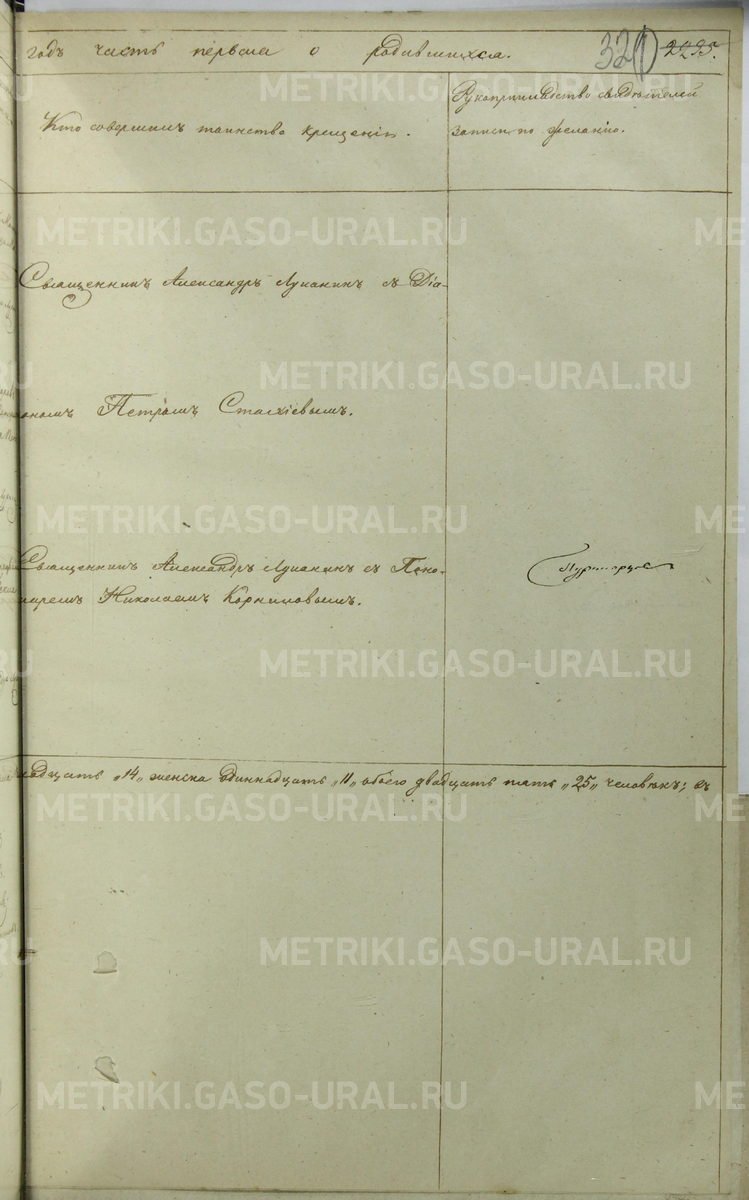 годъ часть первая о родившихся. 320 2295.
Кто совершилъ таинство крещенія.
Рукоприкладство свидѣтелей
записи по желанію.
METRIKI.GASO-URAL.RU
Священникъ Александръ Луканинъ съ Діа-
METRIKI.GASO-URAL.RU
кономъ Петромъ Стахіевымъ.
METRIKI.GASO-URAL.RU
Священникъ Александръ Луканинъ съ Поно-
маремъ Николаемъ Корниловымъ.
METRIKI.GASO-URAL.RU
надцать „14„ женска одиннадцать „11„ обоего двадцать пять „25„ человѣкъ; съ
METRIKI.GASO-URAL.RU
METRIKI.GASO-URAL.RU
METRIKI.GASO-URAL.RU